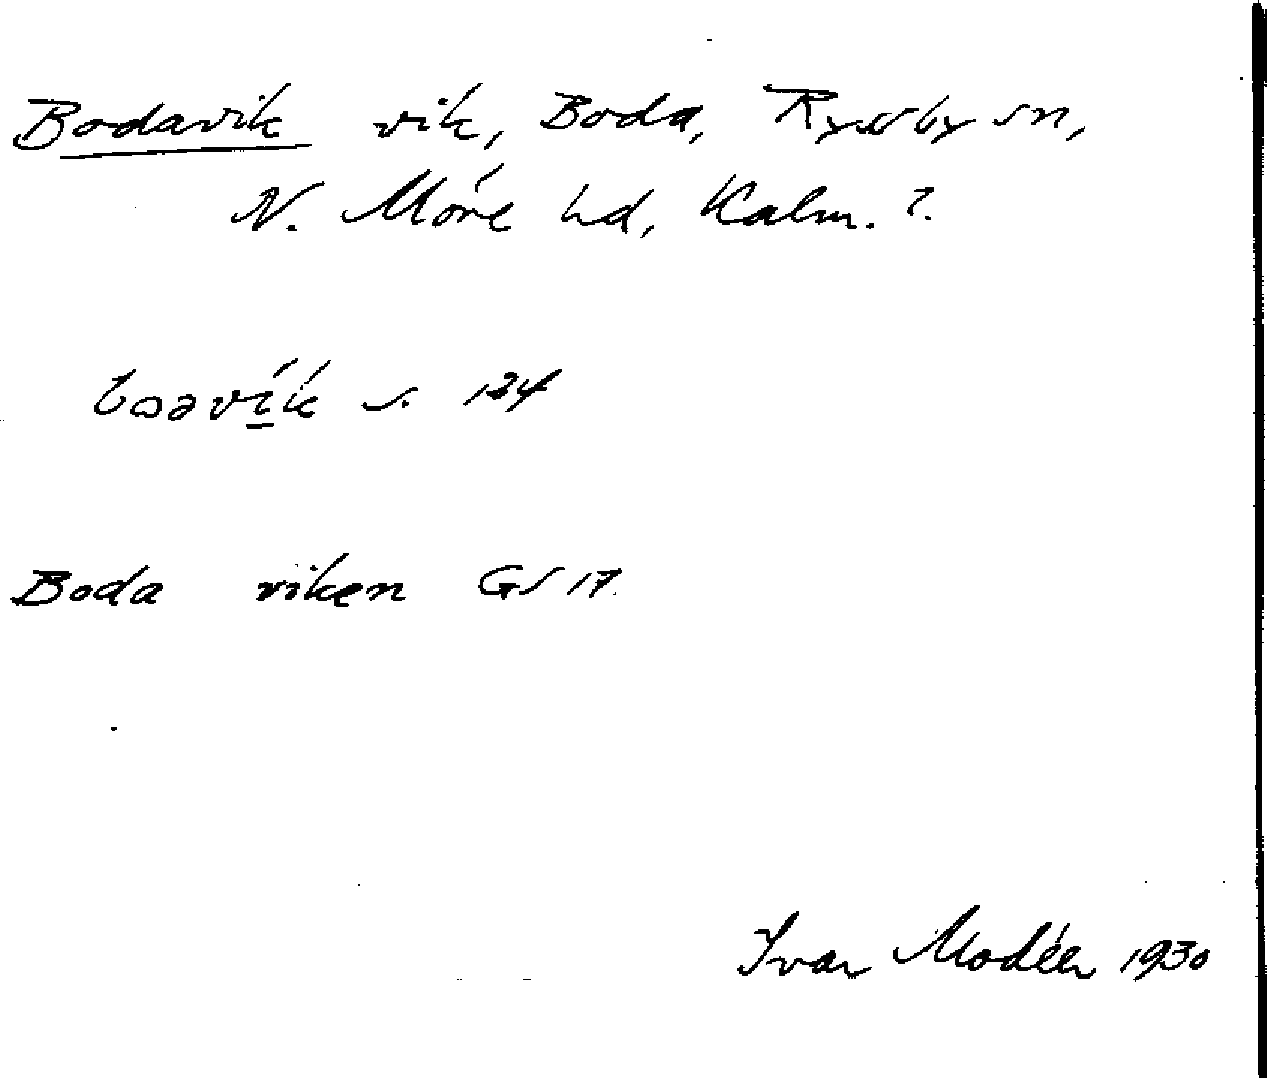 Bodavik vik, Boda, Ryssby sn,
N. Möre hd, Kalm. l.
s. 124
Boda viken GS 17
Ivar Modéer 1930